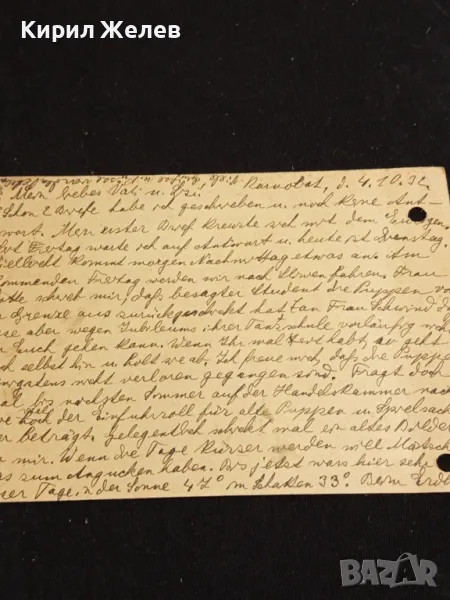 Кирил Желев
Mein liebes Vati u. Karnobat, d. 4.10.32.
Schon 2 Briefe habe ich geschrieben u. noch keine Ant-
wort. Mein erster Brief kreuzte sich mit dem Eurigen.
Freitag warte ich auf Antwort u. heute ist Dienstag
Vielleicht kommt morgen Nachmittag etwas an. Am
kommenden Freitag werden wir nach fahren. Frau
schreibt mir, daß besagter Student die Puppen vo
Grenze aus zurückgeschickt hat an Frau Schwind
aber wegen Jubiläums ihrer Tanzschule vorläufig
Euch gehen kann. Wenn Ihr mal Zeit habt, so geht
selbst hin u. holt sie ab. Ich freue mich, daß die Puppe
wenigstens nicht verloren gegangen sind. Fragt doch
bis nächsten Sommer auf der Handelskammer nach
wie hoch der Einfuhrzoll für alte Puppen u. Spielsach
beträgt. Gelegentlich schickt mal ein altes Bilder
mir. Wenn die Tage kürzer werden will
was zum Angucken haben. Bis jetzt wars hier sehr
Tage, in der Sonne 47° im Schatten 33°. Beim
BAZAR